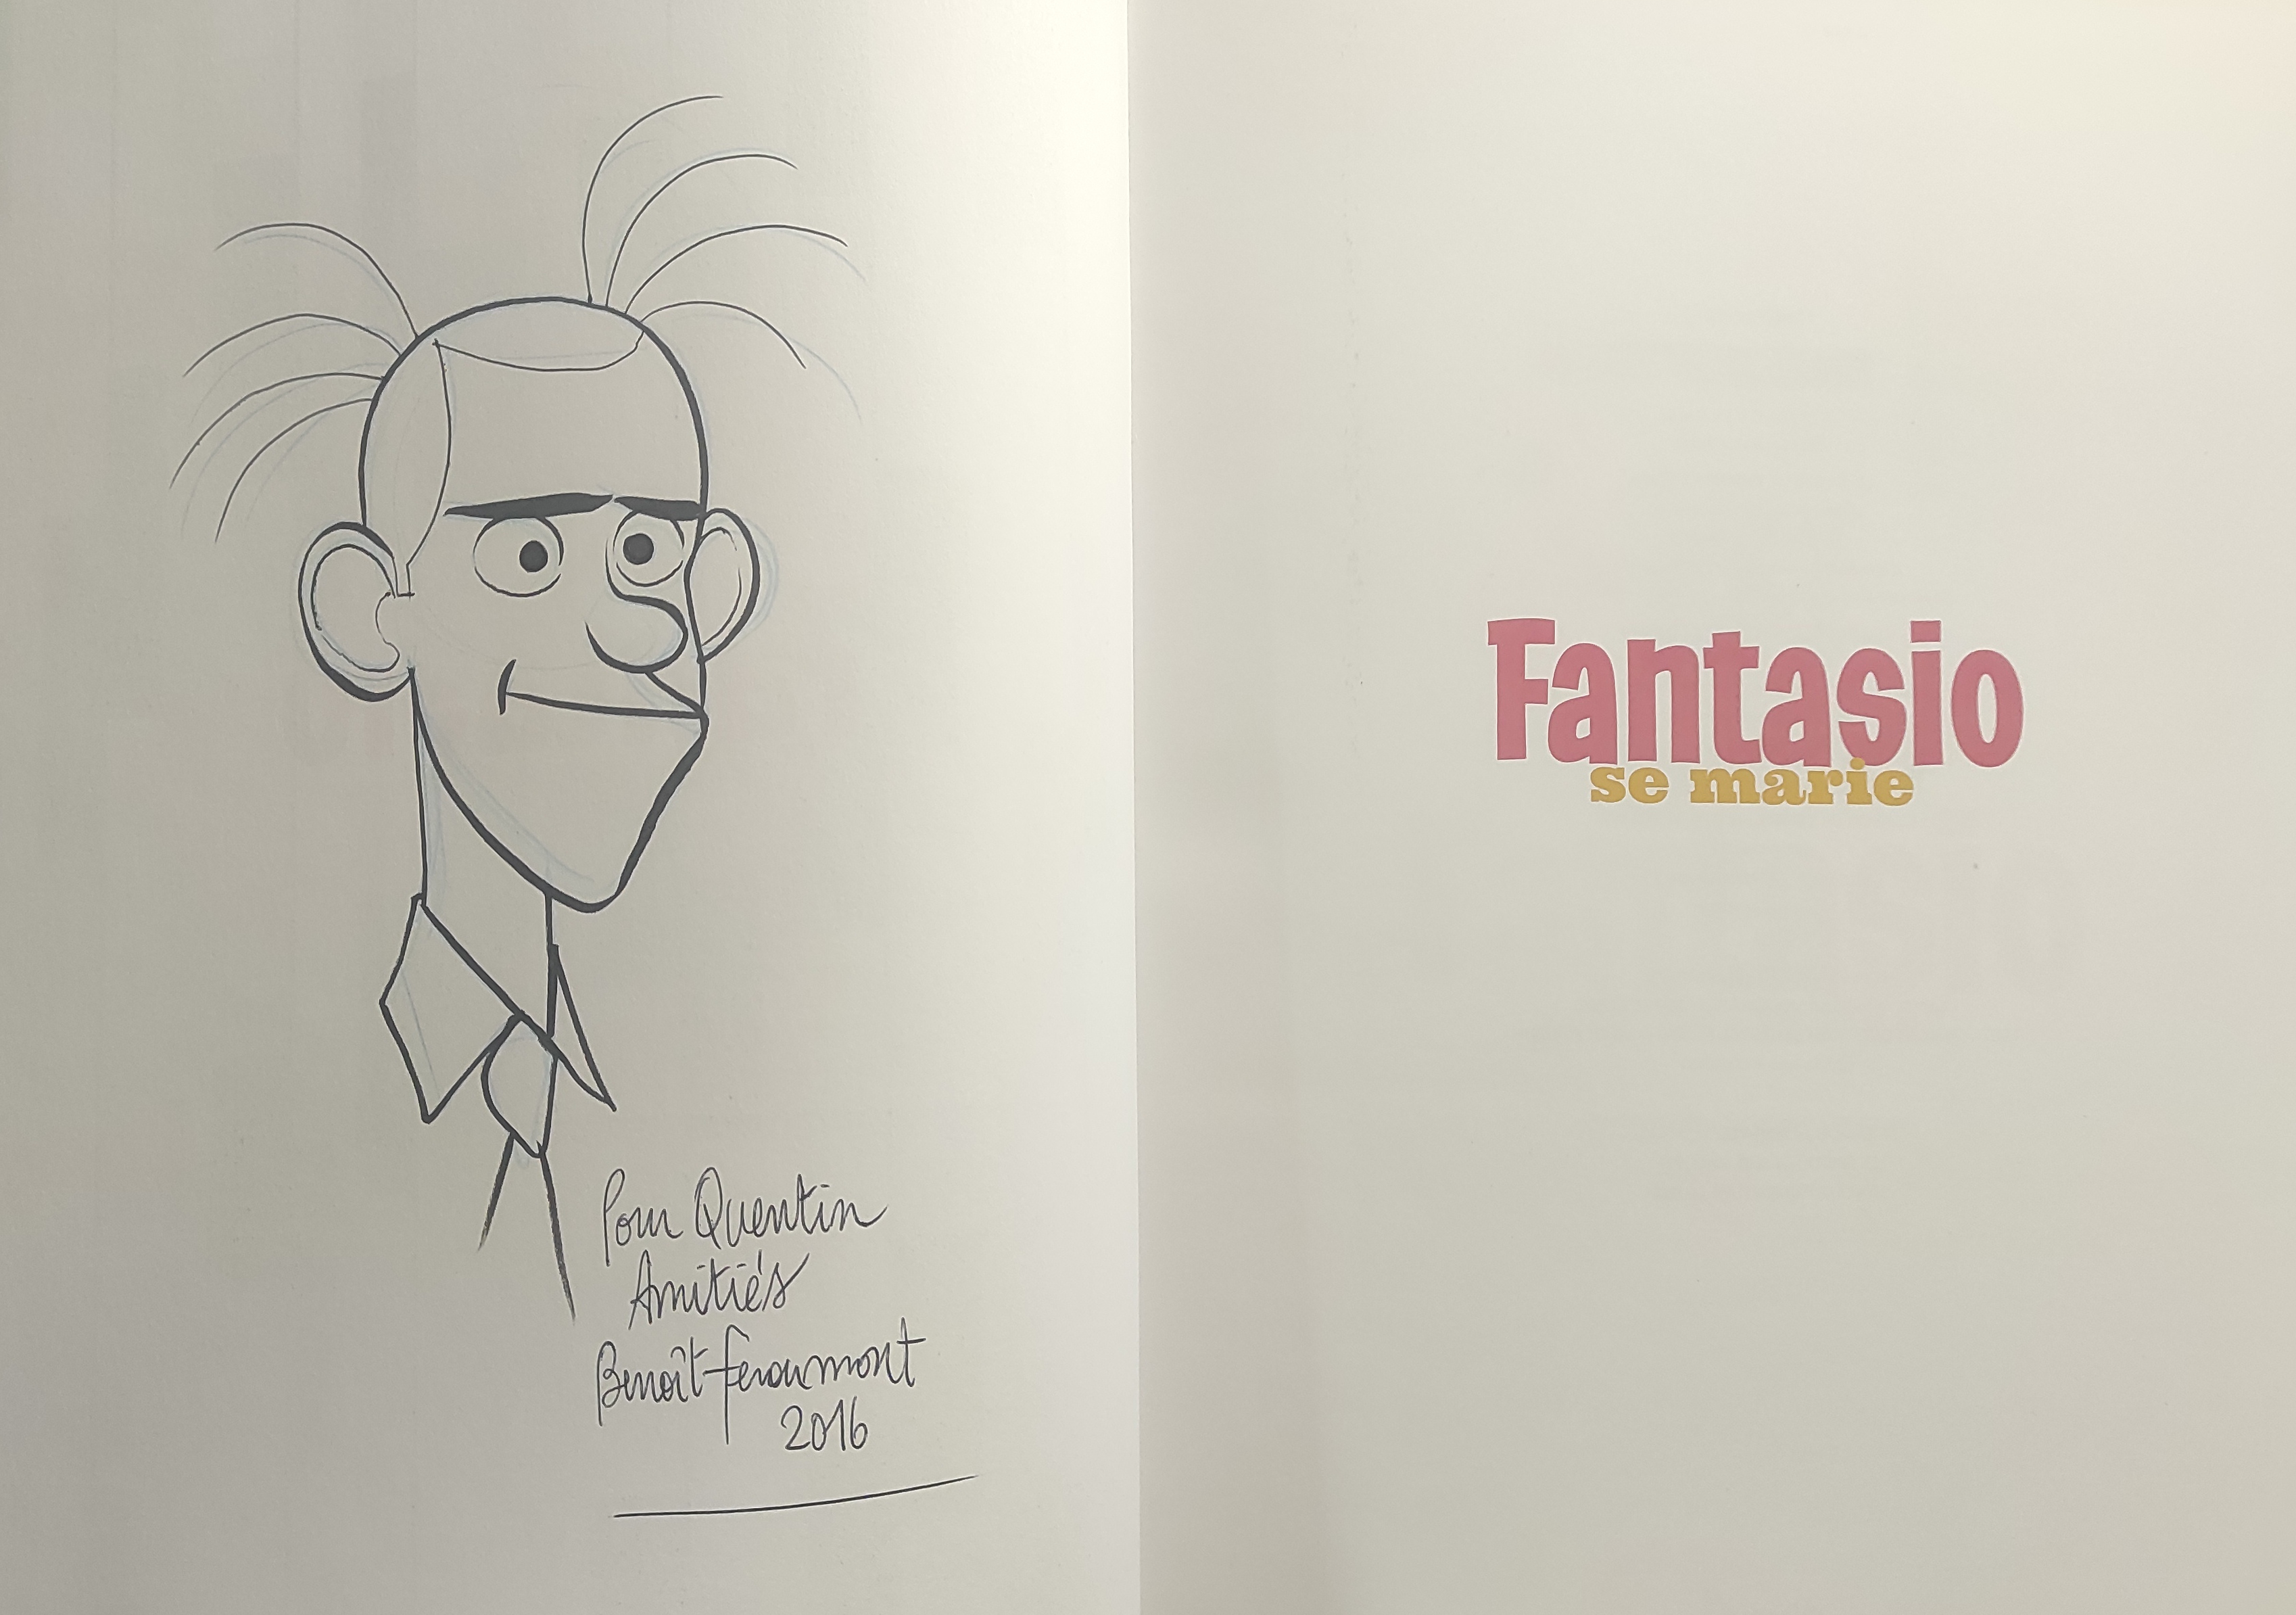 Pour Quentin
Amitiés
Benoît Feroumont
2016
Fantasio
se marie